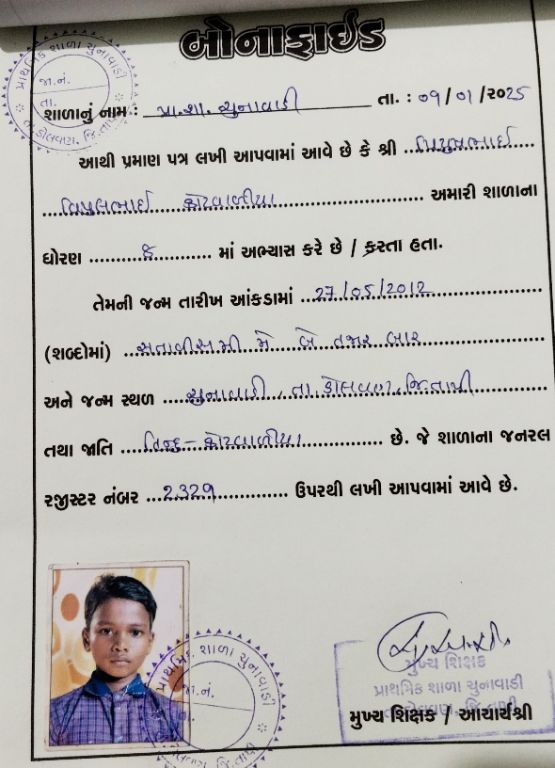 બોનાફાઈડ
પ્રાથમિક શાળા ચુનાવાડી
જા.નં.
તા.
તા.ડોલવણ, જિ.તાપી
શાળાનું નામ : પ્રા.શા. ચુનાવાડી તા. : ૦૧/૦૧/૨૦25
આથી પ્રમાણ પત્ર લખી આપવામાં આવે છે કે શ્રી પિયુષભાઈ
વિપુલભાઈ કોટવાળીયા અમારી શાળાના
ધોરણ ૮ માં અભ્યાસ કરે છે / કરતા હતા.
તેમની જન્મ તારીખ આંકડામાં 27/05/2012
(શબ્દોમાં) સતાવીસમી મે બે હજાર બાર
અને જન્મ સ્થળ ચુનાવાડી તા.ડોલવણ,જિ.તાપી
તથા જાતિ હિન્દુ-કોટવાળીયા છે. જે શાળાના જનરલ
રજીસ્ટર નંબર 2329 ઉપરથી લખી આપવામાં આવે છે.
પ્રાથમિક શાળા ચુનાવાડી
જા.નં.
તા.ડોલવણ, જિ.તાપી
મુખ્ય શિક્ષક
પ્રાથમિક શાળા ચુનાવાડી
તા.ડોલવણ, જિ.તાપી
મુખ્ય શિક્ષક / આચાર્યશ્રી